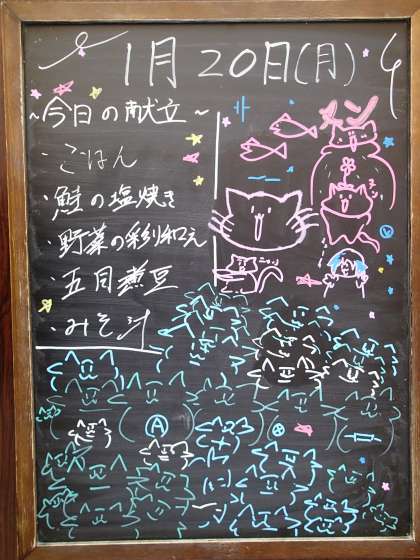 1月20日(月)
~今日の献立~
・ごはん
・鮭の塩焼き
・野菜の彩り和え
・五目煮豆
・みそ汁
A